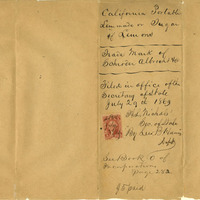 California Portable
Lemonade or Sugar
of Lemons
Trade Mark of
Schroder Albrecht & Co
Filed in office of the
Secretary of State
July 23d 1869
Nichols
Sec. of State
By Lew B
Dep
See Book of
page 252